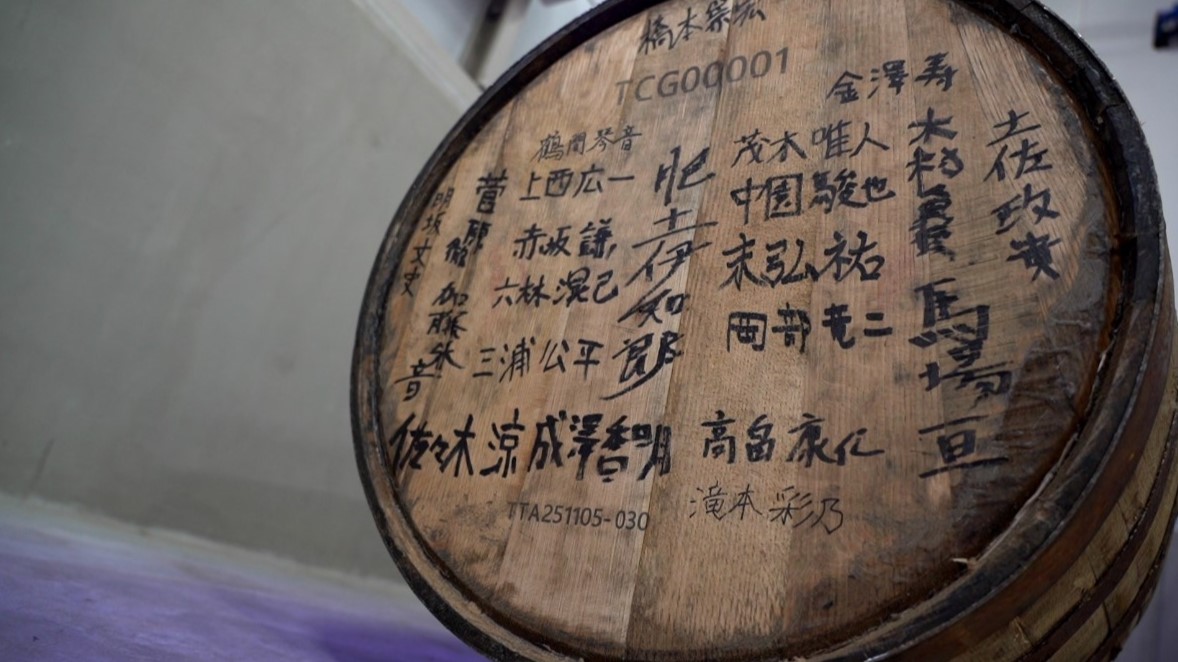 橋本
TCG00001
金澤寿
鶴間琴音
上西広一
茂木唯人
中園駿也
赤坂謙
末弘祐
六林滉己
岡部竜二
三浦公平
肥土伊知郎
佐々木涼
成澤香明
高畠康仁
滝本彩乃
馬場亘
土佐
菅原
加藤
坂文史
TTA251105-030